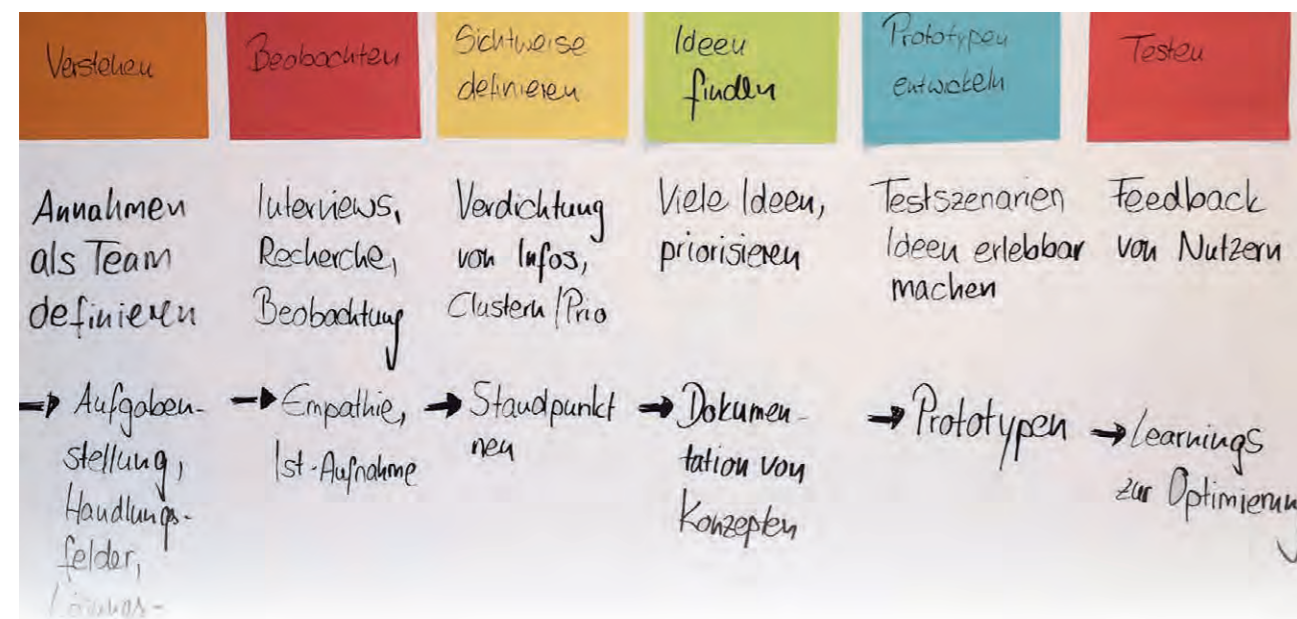 Verstehen
Annahmen
als Team
definieren
→ Aufgaben-
stellung,
Handlungs-
felder,
Beobachten
Interviews,
Recherche,
Beobachtung
→ Empathie,
Ist-Aufnahme
Sichtweise
definieren
Verdichtung
von Infos,
Clustern/Prio
→ Standpunkt
neu
Ideen
finden
Viele Ideen,
priorisieren
→ Dokumen-
tation von
Konzepten
Prototypen
entwickeln
Testszenarien
Ideen erlebbar
machen
→ Prototypen
Testen
Feedback
von Nutzern
→ Learnings
zur Optimierung